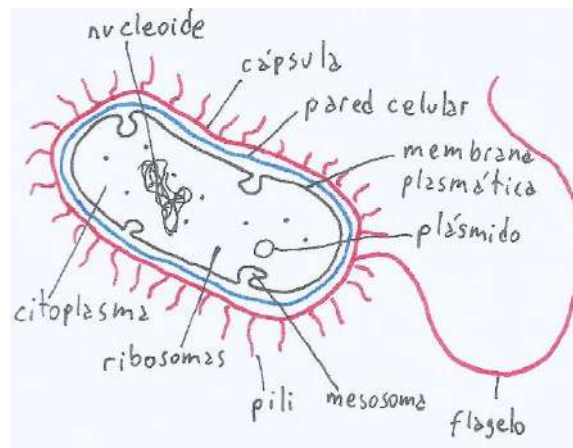 nucleoide
cápsula
pared celular
membrana
plasmática
plásmido
citoplasma
ribosomas
pili
mesosoma
flagelo